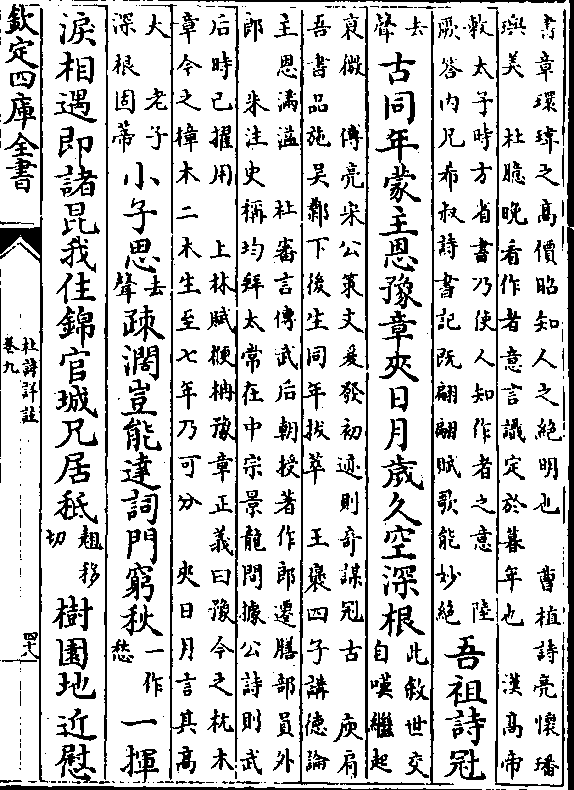 書章環瑋之高價昭知人之絕明也　曹植詩亮懷璠
璵美　杜臆晚看作者意言議定於暮年也　漢高帝
敕太子時方省書乃使人知作者之意　陸
厥答内兄希叔詩書記既翩翩賦歌能妙絕
吾祖詩冠
去聲
古同年蒙主恩豫章夾日月歲久空深根
此敘世交
自嘆繼起
哀微　傅亮宋公策文爰發初迹則奇謀冠古　庾肩
吾書品施吳鄴下後生同年拔萃　王褒四子講德論
主恩滿溢　杜審言傳武后朝授著作郎遷膳部員外
郎　朱注史稱均拜太常在中宗景龍間據公詩則武
后時已擢用　上林賦楩柟豫章正義曰豫今之枕木
章今之樟木二木生至七年乃可分　夾日月言其高
大　老子
深根固蒂
小子思
去聲
疎濶豈能達詞門窮秋
一作愁
一揮
淚相遇即諸昆我住錦官城兄居秪
翹移切
樹園地近慰
欽定四庫全書
杜詩詳註
卷九
四十八